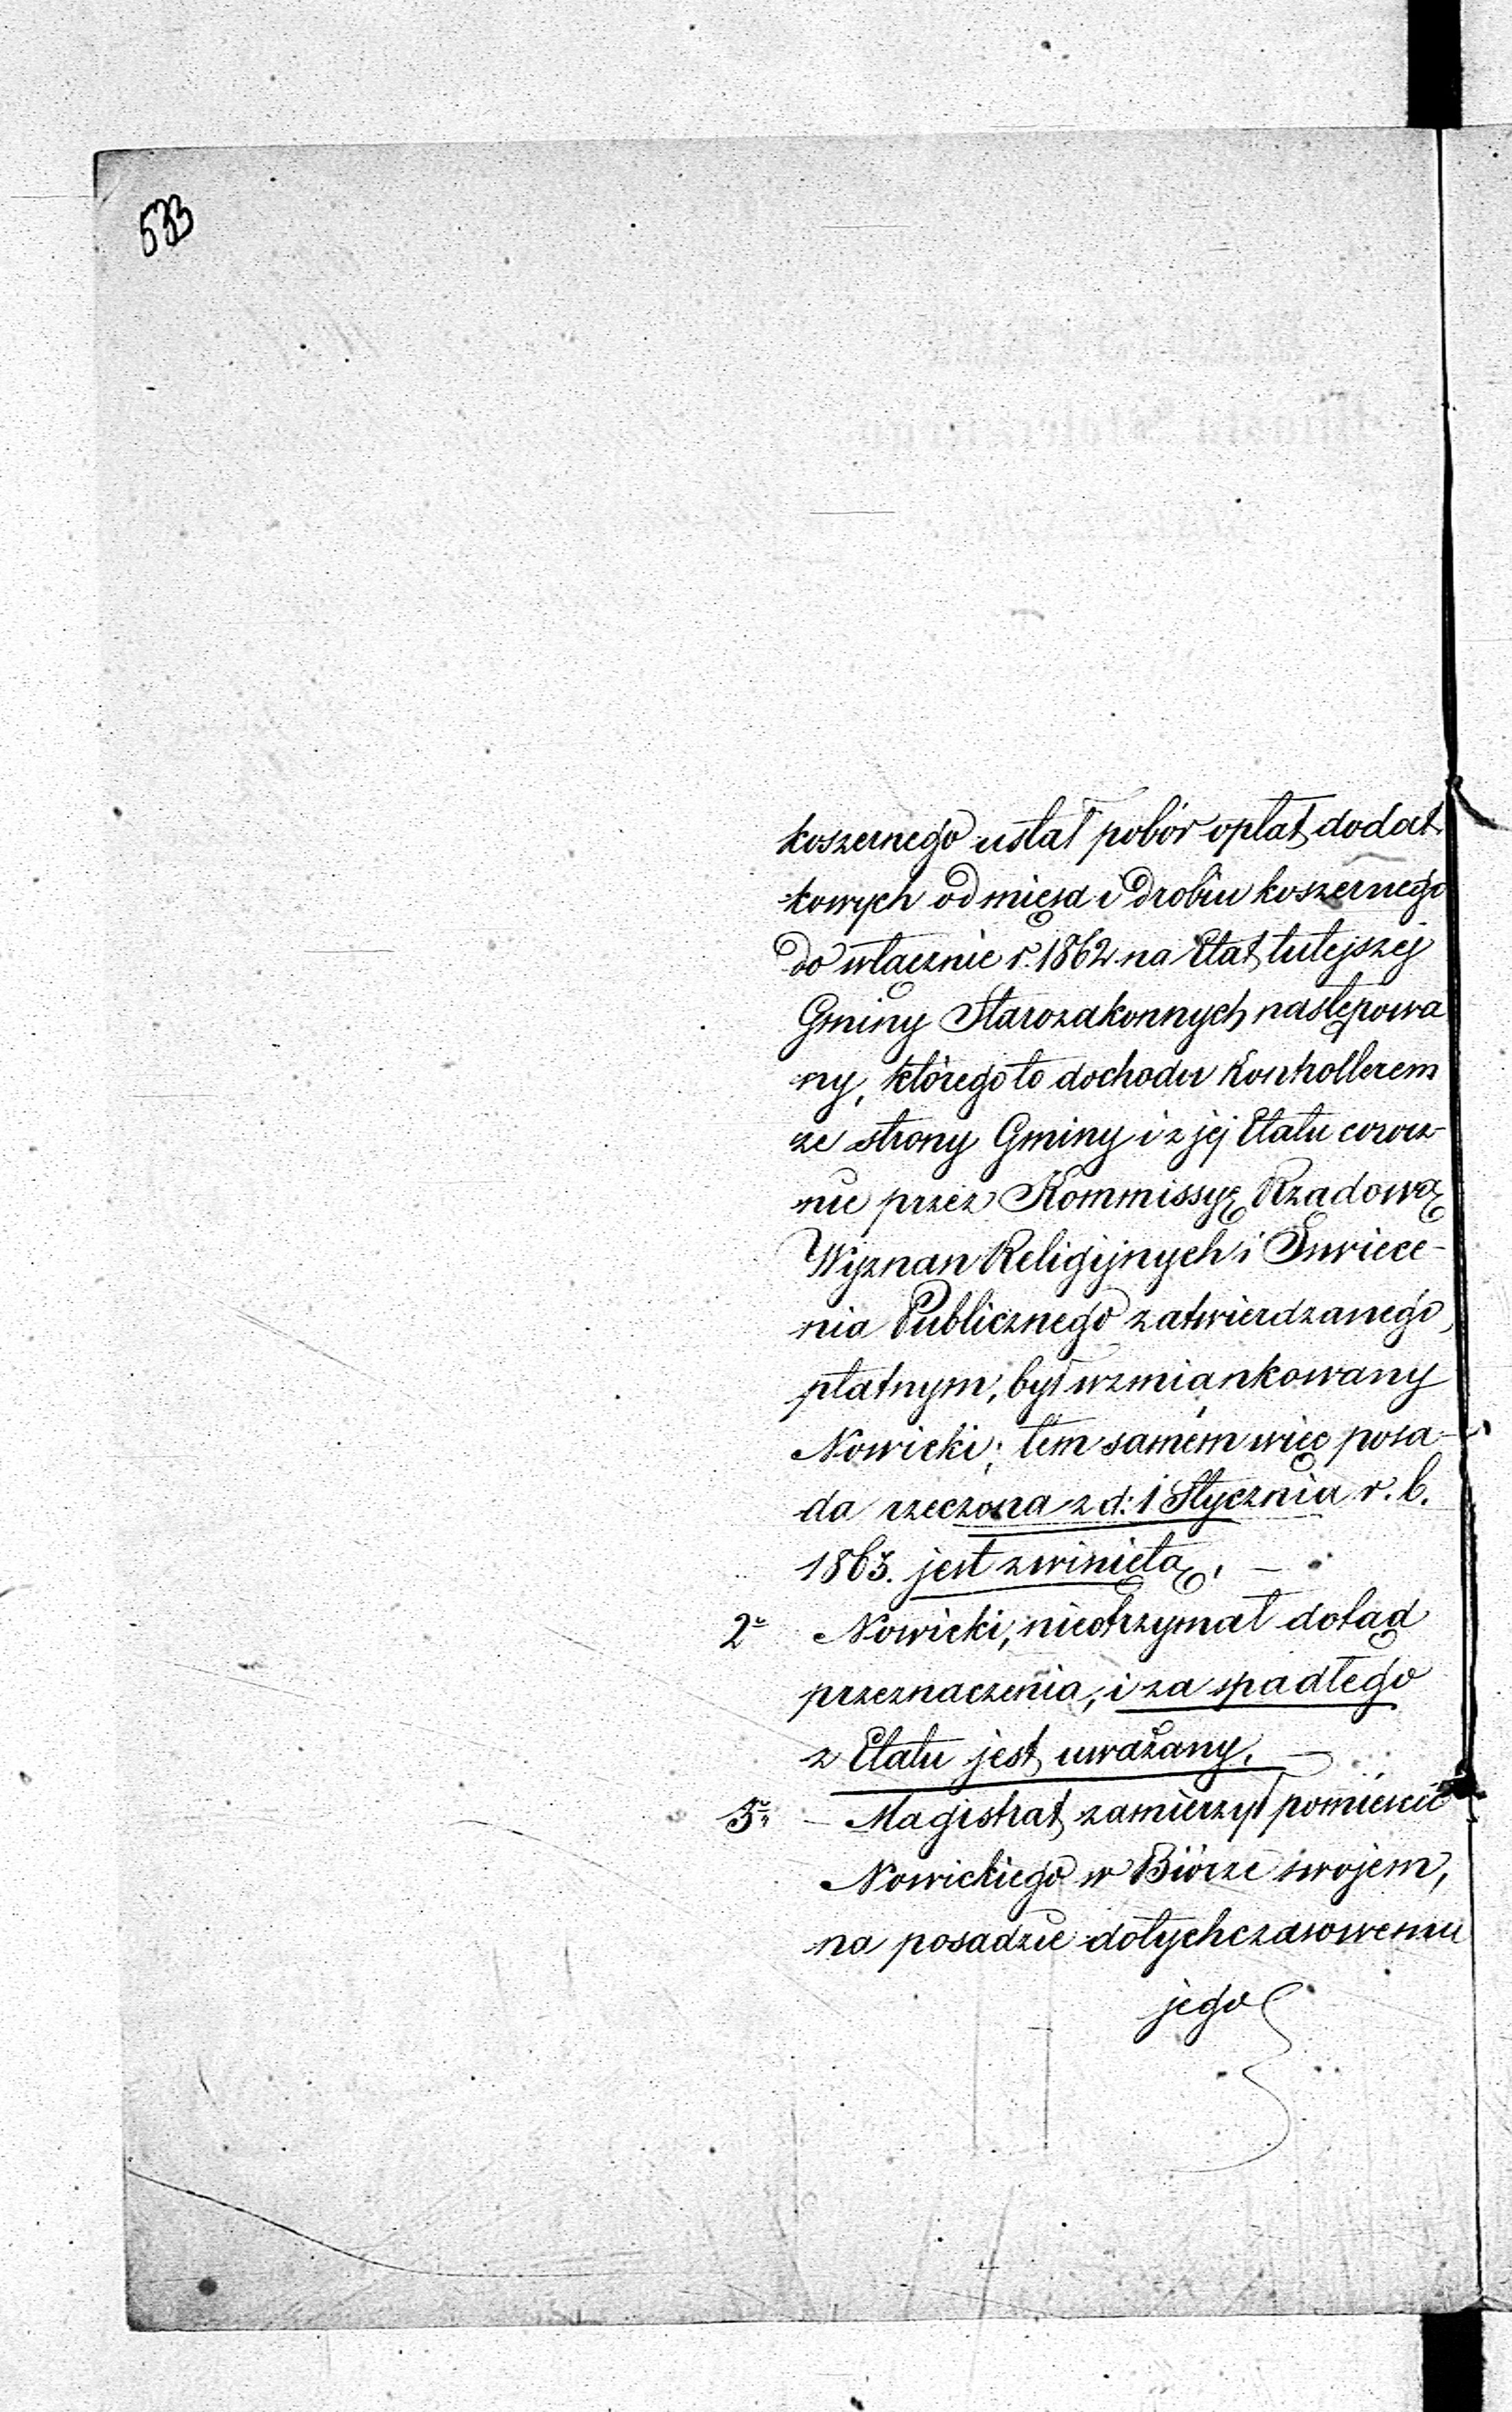 533
koszernego ustał pobór opłat dodat
kowych od mięsa i drobiu koszernego
do włącznie r. 1862 na Etat tutejszej
Gminy Starozakonnych następowa
ny, którego to dochodu Kontrollerem
ze strony Gminy i z jej Etatu corocz-
nie przez Kommissyę Rządową
Wyznan Religijnych i Oswiece-
nia Publicznego zatwierdzanego,
płatnym, był wzmiankowany
Nowicki; tém samém więc posa-
da rzeczona z d: 1 Stycznia r. b.
1863. jest zwiniętą, –
2º Nowicki, nieotrzymał dotąd
przeznaczenia, i za spadłego
z Etatu jest uważany. –
3º – Magistrat zamierzył pomieścić
Nowickiego w Biórze swojem,
na posadzie dotychczasowemu
jego